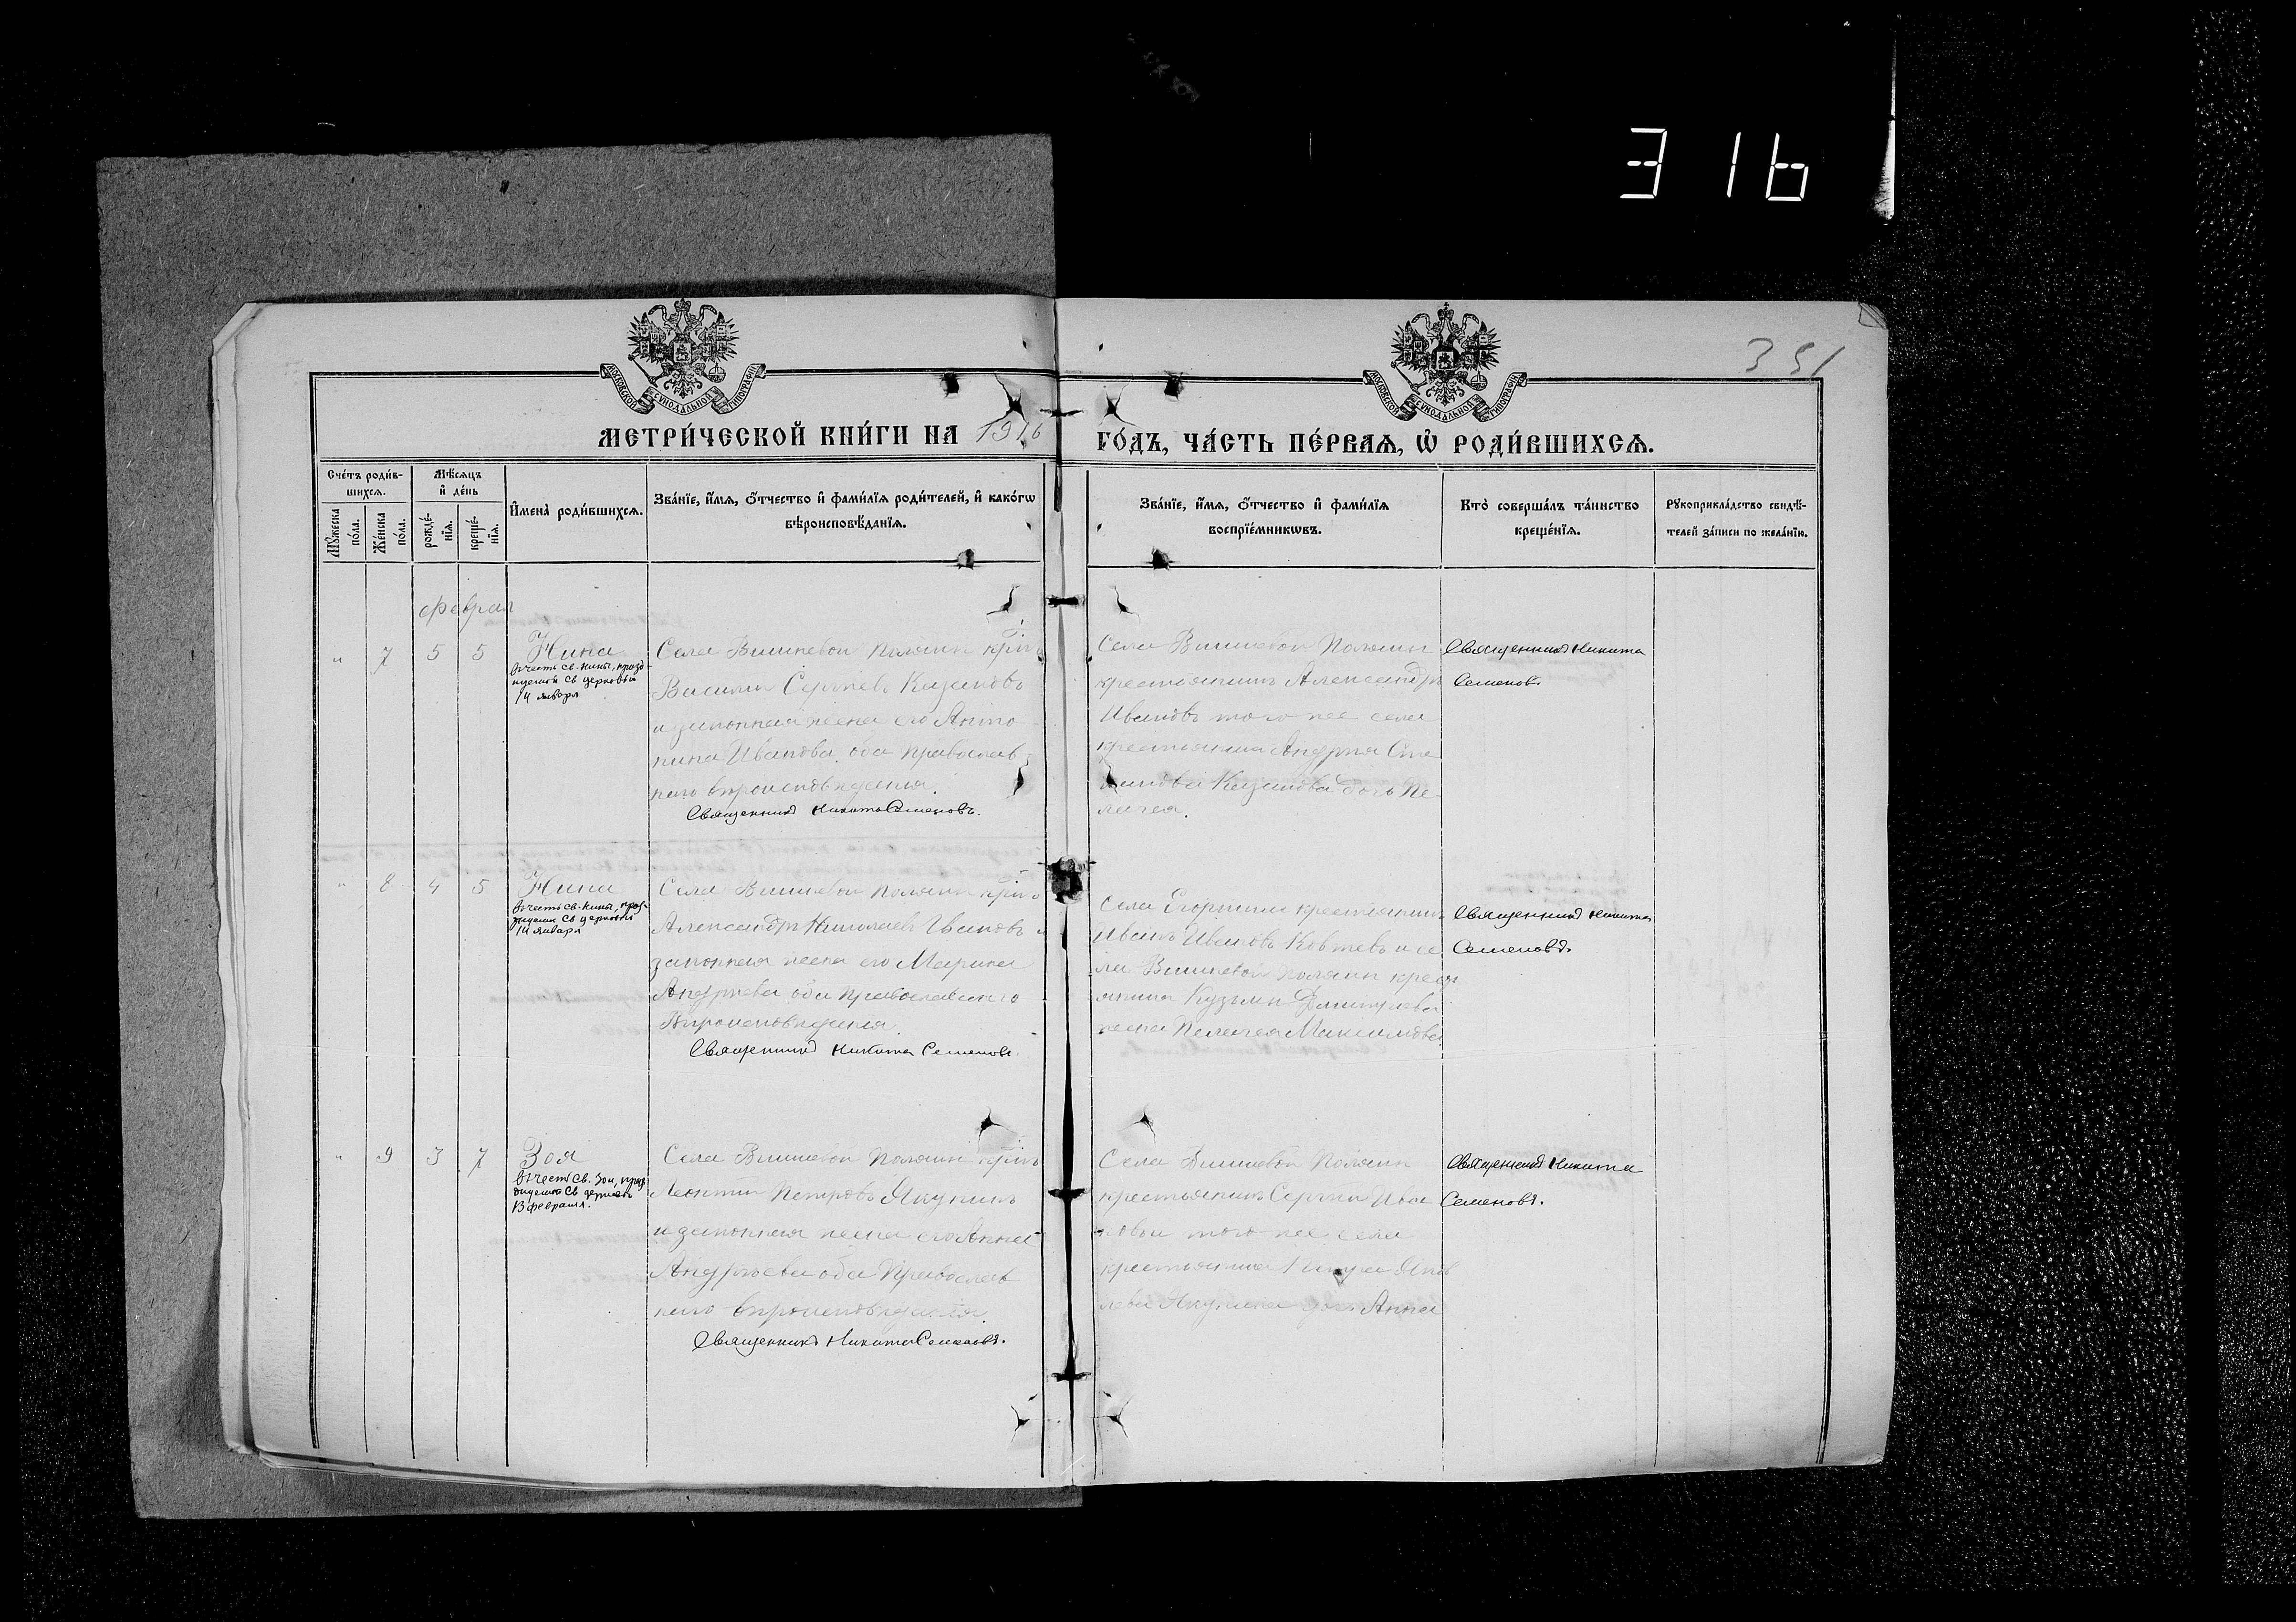 316
351
МОСКОВСКОЙ СѴНОДАЛЬНОЙ ТИПОГРАФІИ
МОСКОВСКОЙ СѴНОДАЛЬНОЙ ТИПОГРАФІИ
МЕТРИ́ЧЕСКОЙ КНИ́ГИ НА 1916 ГО́ДЪ, ЧА́СТЬ ПЕ́РВАѦ, Ѡ҆ РОДИ́ВШИХСѦ.
Сче́тъ роди́в-
шихсѧ.
Мꙋ́жеска
по́ла.
Же́нска
по́ла.
Мѣ́сѧцъ
и҆ де́нь
рожде́-
нїѧ.
креще́-
нїѧ.
И҆мена̀ роди́вшихсѧ.
Зва́нїе, и҆́мѧ, ѻ҆́тчество и҆ фами́лїѧ роди́телей, и҆ како́гѡ
вѣроисповѣ́данїѧ.
Зва́нїе, и҆́мѧ, ѻ҆́тчество и҆ фами́лїѧ
воспрїе́мникѡвъ.
Кто̀ соверша́лъ та́инство
креще́нїѧ.
Рꙋкоприкла́дство свидѣ́-
телей за́писи по жела́нїю.
Феврал
" 7 5 5 Нина
въ честь св. Нины, празд
нуемой Св церковью
14 января
Села Вишневой Поляны кр-нъ
Василий Сергѣевъ Казаковъ
и законная жена его Анто
нина Иванова, оба православ
наго вѣроисповѣданія.
Священникъ Никита Семеновъ.
Села Вишневой Поляны
крестьянинъ Александръ
Ивановъ того же села
крестьянина Андрея Сте
панова Казакова дочь Пе
лагея.
Священникъ Никита
Семеновъ.
" 8 4 5 Нина
въ честь св. Нины, праз-
днуемой Св церковью
14 января
Села Вишневой Поляны кр-нъ
Александръ Николаевъ Ивановъ и
законная жена его Марина
Андреева оба православнаго
Вѣроисповѣданія.
Священникъ Никита Семеновъ.
Села Егоркина крестьянинъ
Иванъ Ивановъ и се
ла Вишневой Поляны крест
янина Кузьмы Дмитриева
жена Пелагея Максимова
Священникъ Никита
Семеновъ.
" 9 3 7 Зоя
въ честь св. Зои, празд
днуемой Св церковью
13 февраля.
Села Вишневой Поляны кр-нъ
Леонтий Петровъ Якунинъ
и законная жена его Анна
Андреева оба Православ
наго вѣроисповѣданія.
Священникъ Никита Семеновъ.
Села Вишневой Поляны
крестьянинъ Сергѣй Ива
новъ того же села
крестьянина Яков
лева Якунина дочь Анна
Священникъ Никита
Семеновъ.